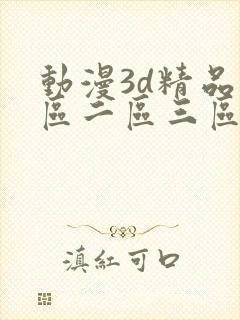 動漫3d精品
區二區三區
滇紅可口